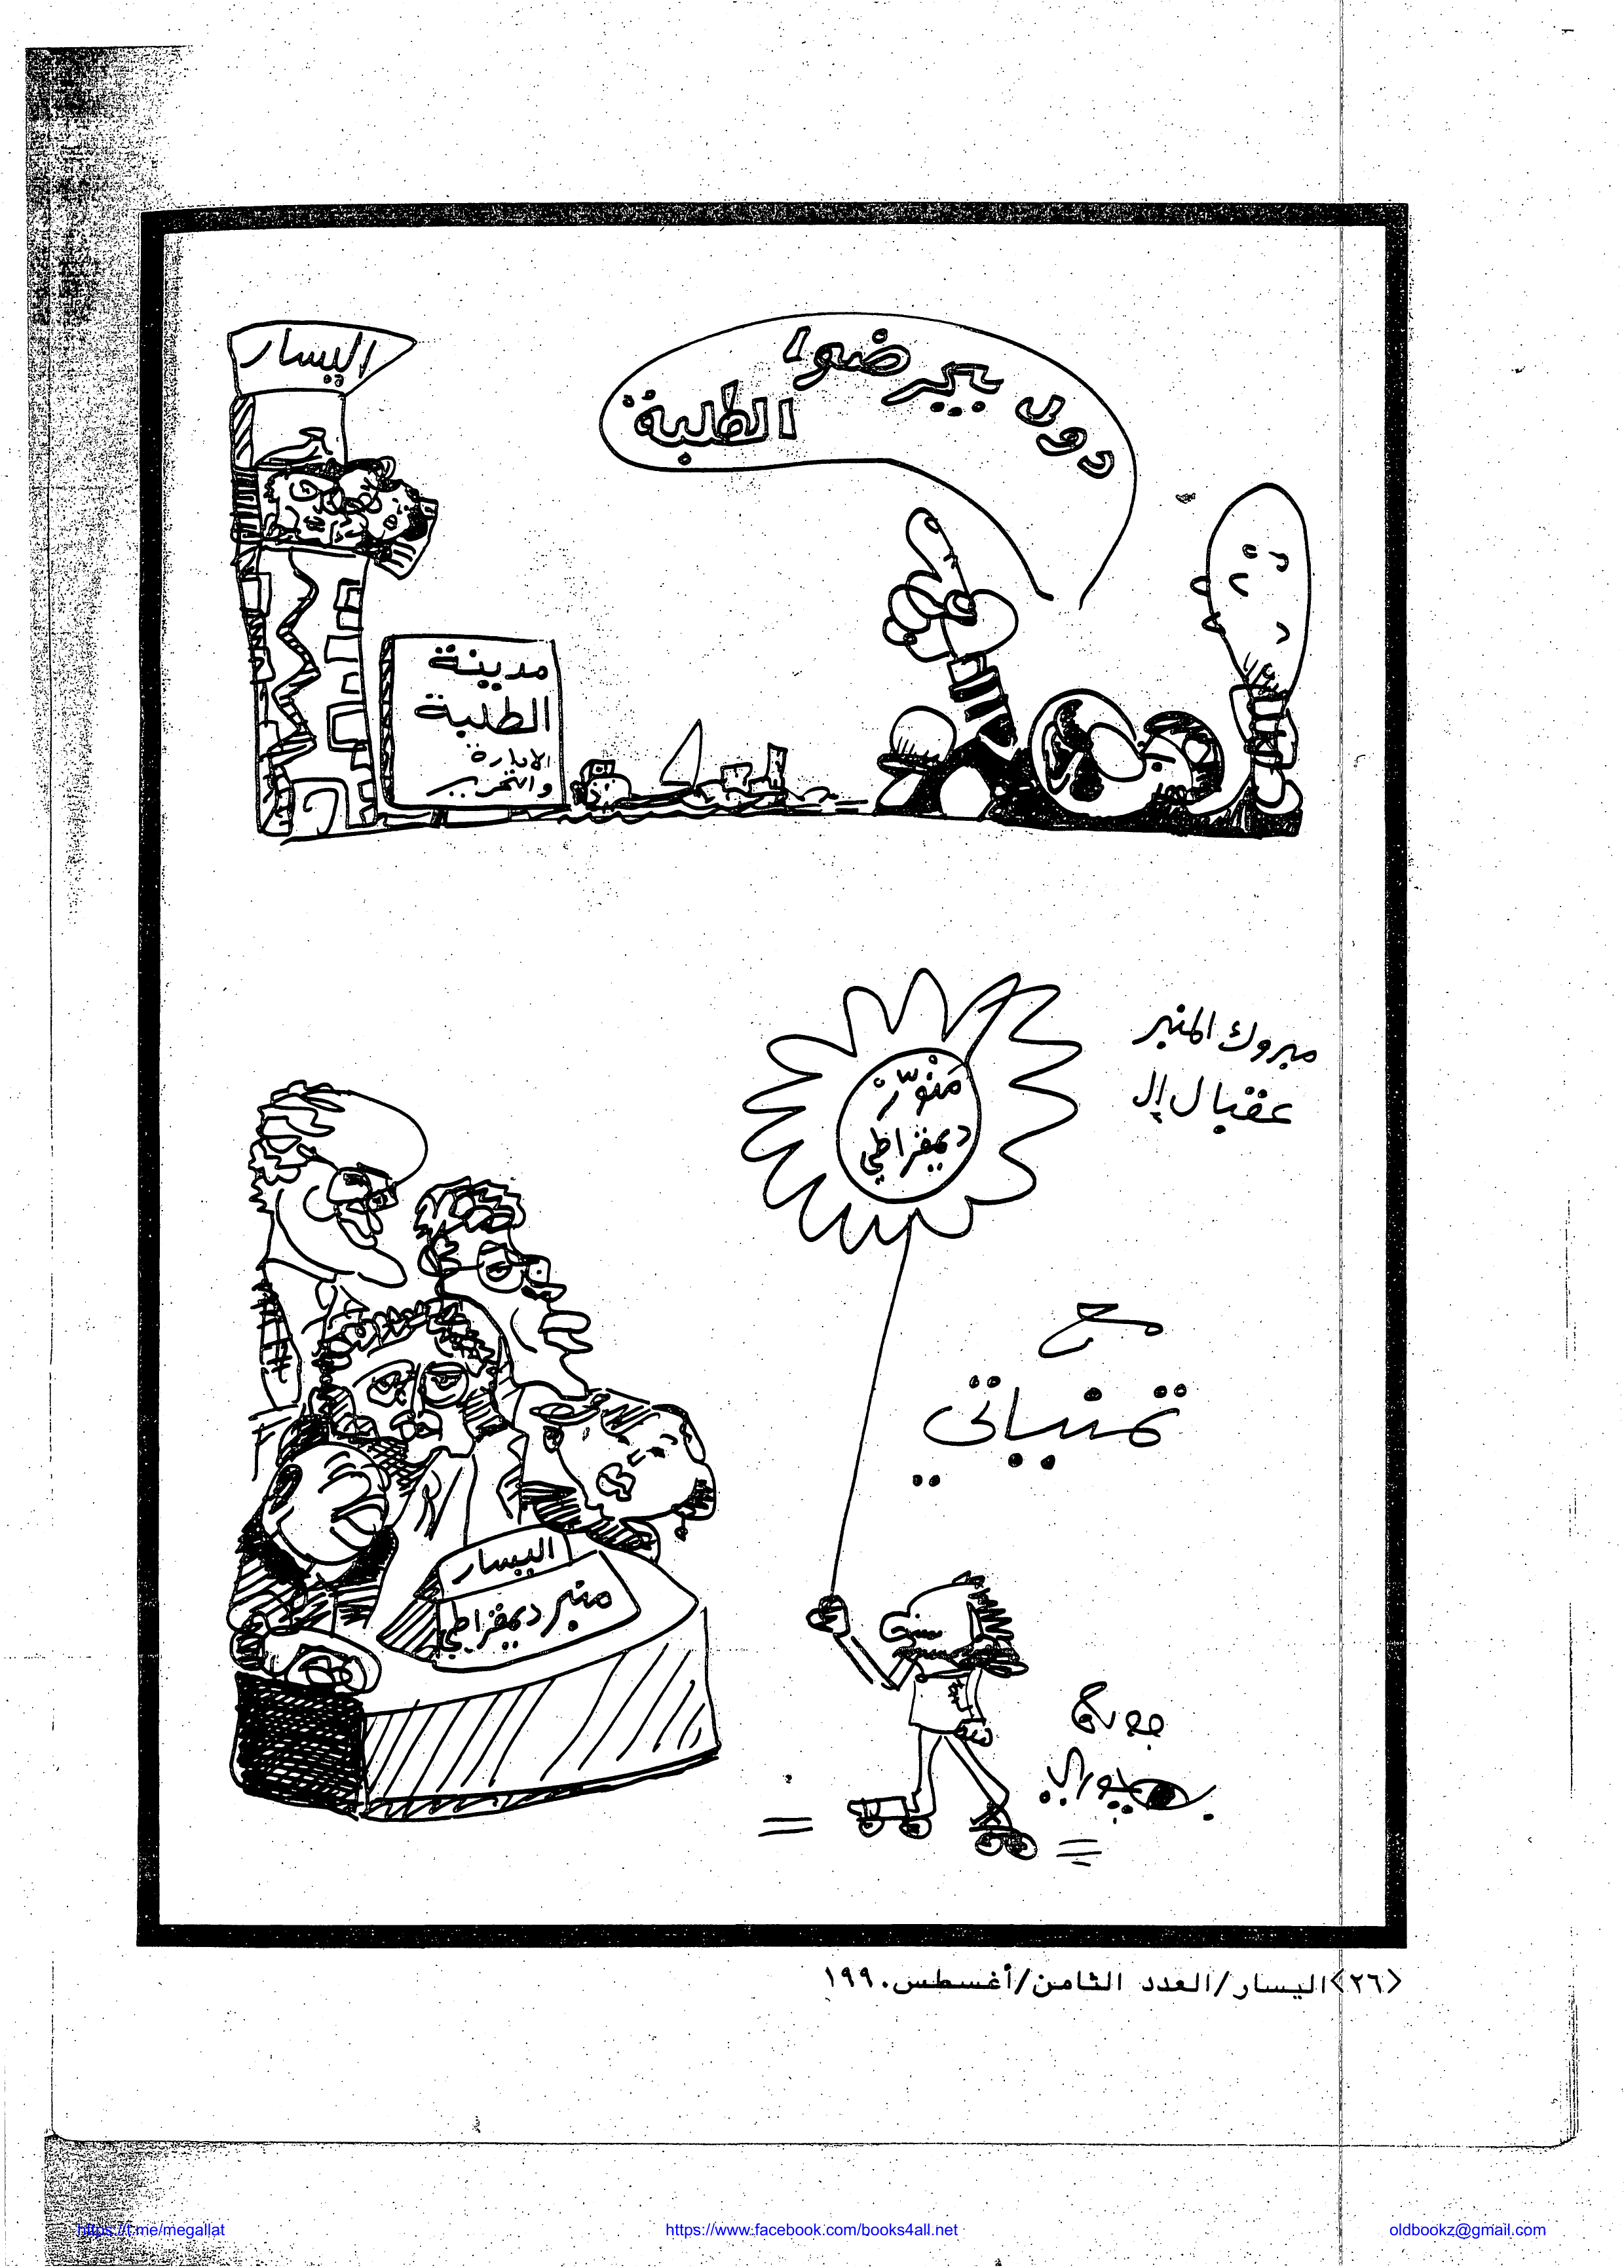 اليسار
دول بيرضوا
الطلبة
مدينة
الطلبة
الإدارة
والتحرير
مبروك المنبر
عقبال إل
منوّر
ديمقراطي
مع
تمنياتي
اليسار
منبر ديمقراطي
جورج
<٢٦>اليسار/العدد الثامن/أغسطس.١٩٩
https://t.me/megallat
https://www.facebook.com/books4all.net
oldbookz@gmail.com